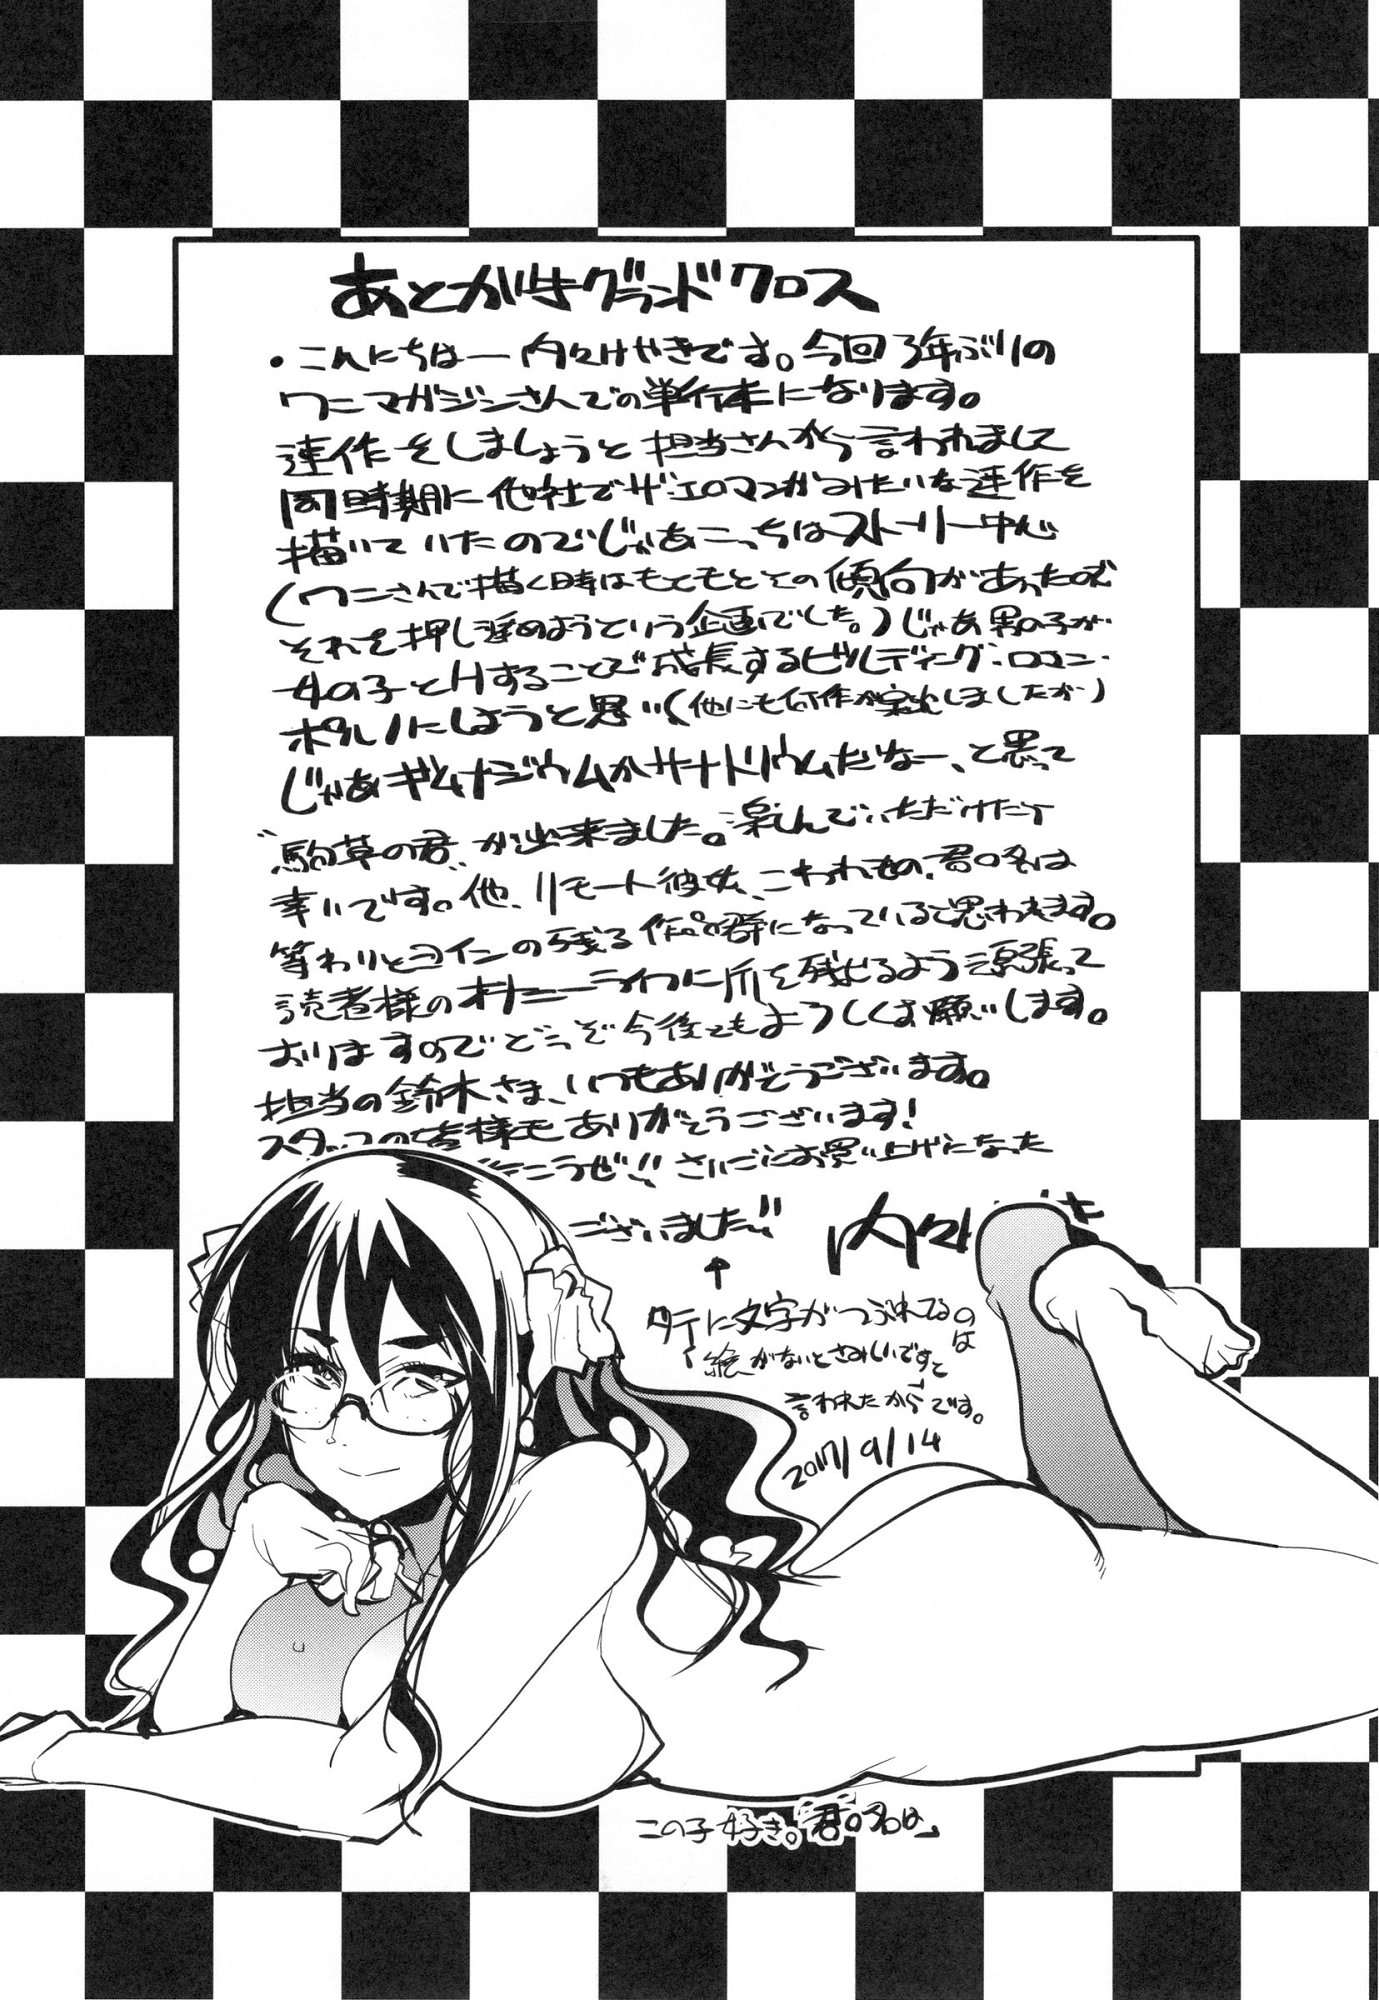 あとがきグランドクロス
・こんにちはー内々けやきです。今回3年ぶりの
ワニマガジンさんでの単行本になります。
連作をしましょうと担当さんから言われまして
同時期に他社でザ・エロマンガみたいな連作を
描いていたのでじゃあこっちはストーリー中心
(ワニさんで描く時はもともとその傾向があったので
それを押し進めようという企画でした。)じゃあ男の子が
女の子とHすることで成長するビルディング・ロマン・
ポルノにしようと思い(他にも何作か しましたが)
じゃあギムナジウムかサナトリウムだなー、と思って
"駒草の君"が出来ました。楽しんでいただけたら
幸いです。他、リモート彼女、こわれもの、君の名は
等わりとヨインの残る作品群になっていると思われます。
読者様のオナニーライフに爪を残せるよう頑張って
おりますのでどうぞ今後ともよろしくお願いします。
担当の鈴木さま、いつもありがとうございます。
スタッフの皆様もありがとうございます!
こうぜ!! さいごにお買い上げになった
ございました!!
内々
↑
タテに文字がつぶれてるのは
「絵がないとさみしいですと」
言われたからです。
2017/9/14
この子好き。「君の名は」